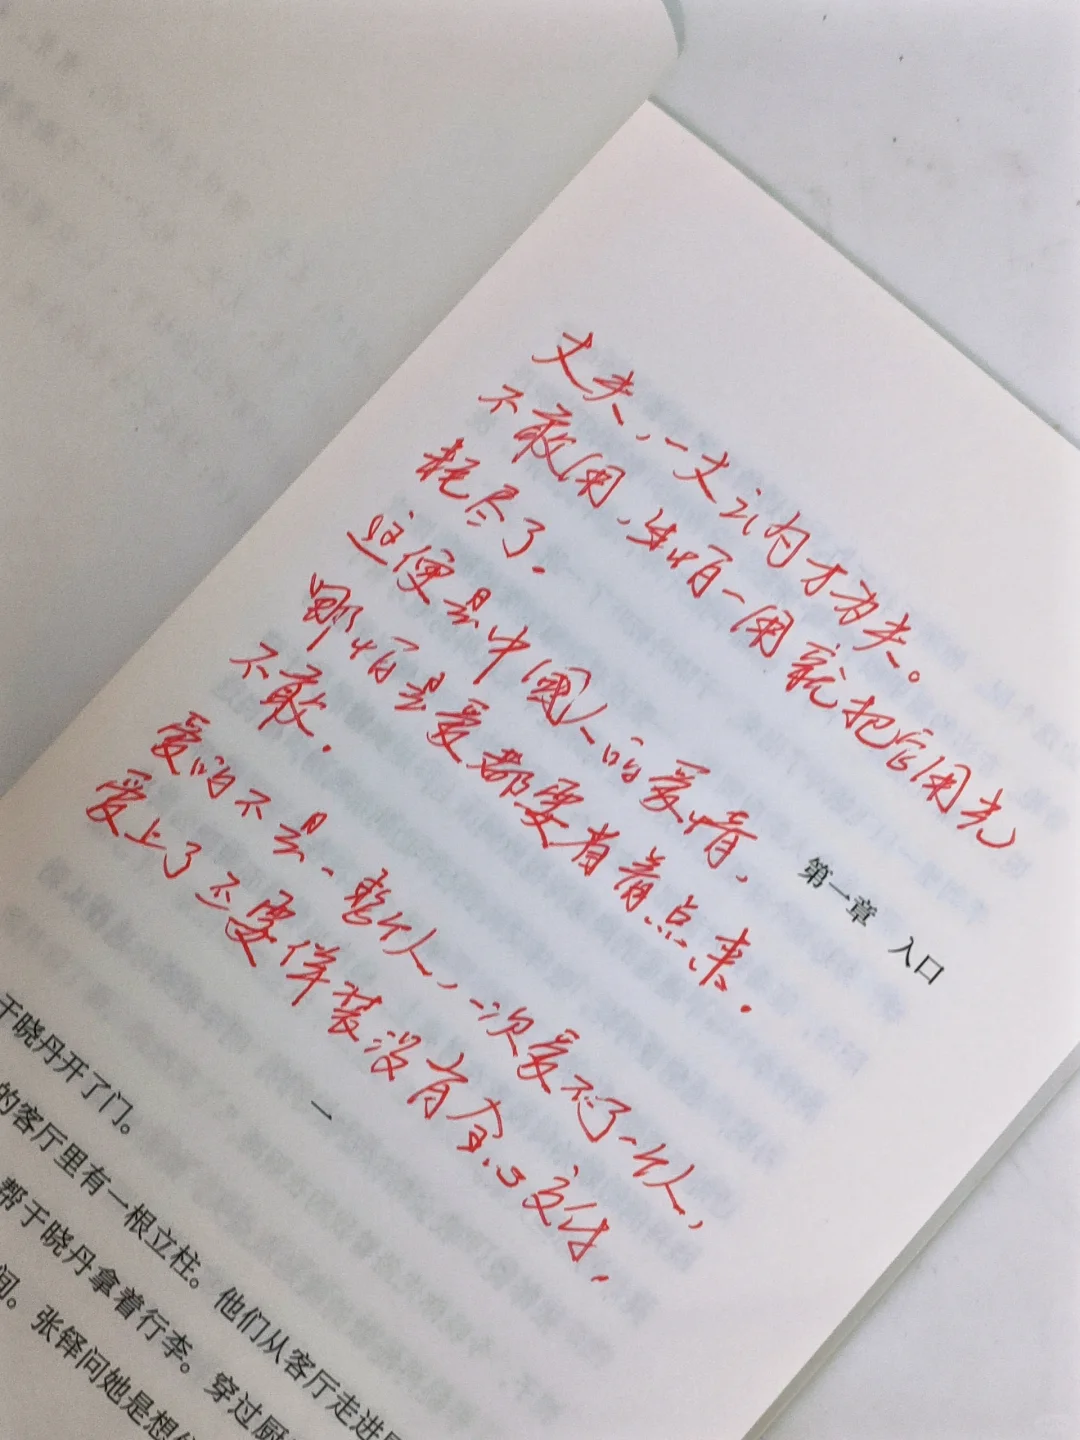 丈夫,一丈之内才为夫。
不敢用,生怕一用就把它用光
耗尽了.
这便是中國人的爱情,
哪怕是爱都要省着点来.
不敢.
爱的不是一整个人,一次爱不了一个人,
爱上了还要佯装没有全心交付.
第一章 入口
一
于晓丹开了门。
的客厅里有一根立柱。他们从客厅走进
帮于晓丹拿着行李。穿过厨
间。张铎问她是想